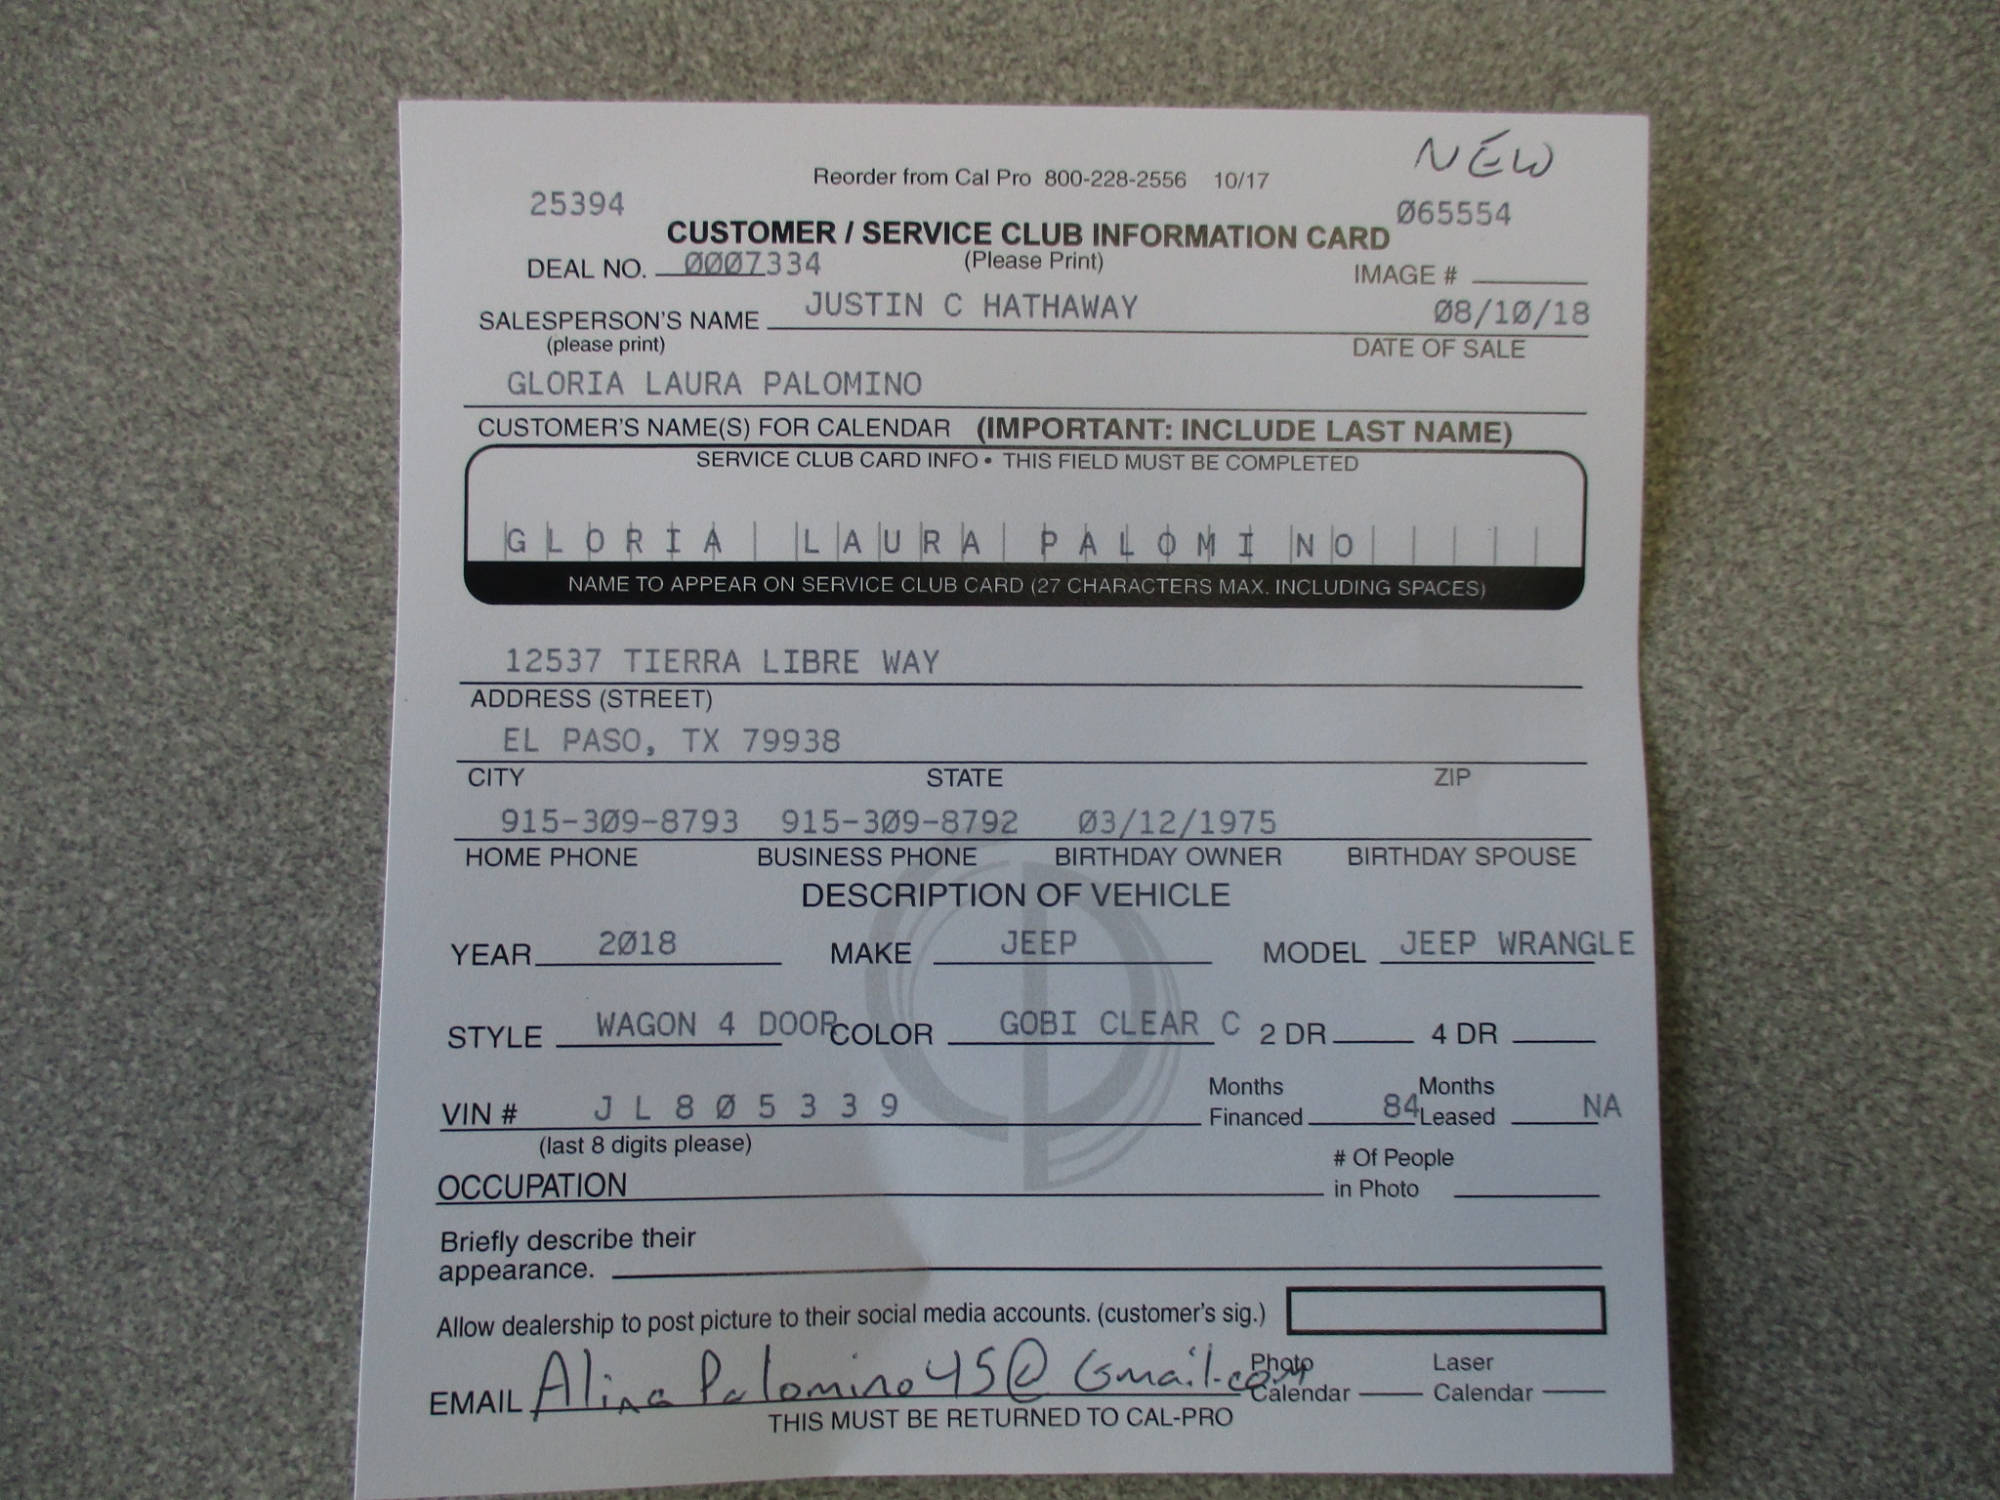 NEW
Reorder from Cal Pro 800-228-2556 10/17
25394 065554
CUSTOMER / SERVICE CLUB INFORMATION CARD
DEAL NO. 0007334 (Please Print) IMAGE #
SALESPERSON'S NAME JUSTIN C HATHAWAY 08/10/18
(please print) DATE OF SALE
GLORIA LAURA PALOMINO
CUSTOMER'S NAME(S) FOR CALENDAR (IMPORTANT: INCLUDE LAST NAME)
SERVICE CLUB CARD INFO • THIS FIELD MUST BE COMPLETED
GLORIA LAURA PALOMINO
NAME TO APPEAR ON SERVICE CLUB CARD (27 CHARACTERS MAX. INCLUDING SPACES)
12537 TIERRA LIBRE WAY
ADDRESS (STREET)
EL PASO, TX 79938
CITY STATE ZIP
915-309-8793 915-309-8792 03/12/1975
HOME PHONE BUSINESS PHONE BIRTHDAY OWNER BIRTHDAY SPOUSE
DESCRIPTION OF VEHICLE
YEAR 2018 MAKE JEEP MODEL JEEP WRANGLE
STYLE WAGON 4 DOOR COLOR GOBI CLEAR C 2 DR 4 DR
VIN # J L 8 0 5 3 3 9 Months Financed 84 Months Leased NA
(last 8 digits please)
OCCUPATION # Of People in Photo
Briefly describe their
appearance.
Allow dealership to post picture to their social media accounts. (customer's sig.)
EMAIL AlinaPalomino45@Gmail.com Photo Calendar Laser Calendar
THIS MUST BE RETURNED TO CAL-PRO